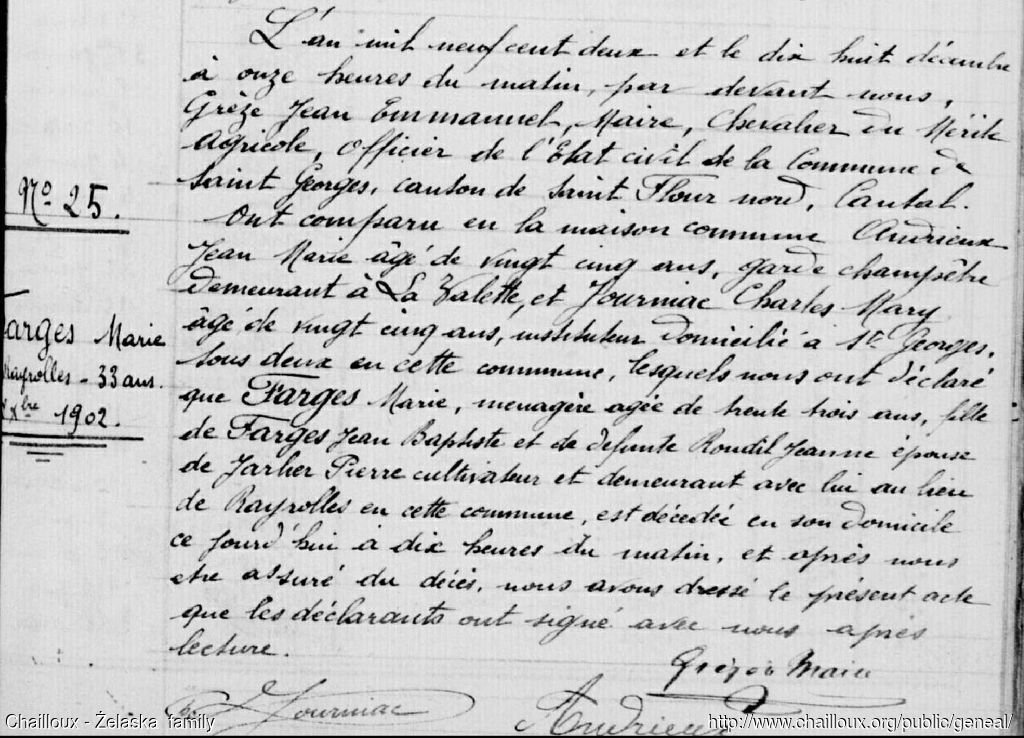 L'an mil neuf cent deux et le dix huit décembre
à onze heures du matin, par devant nous,
Grèze Jean Emmanuel, Maire, Chevalier du Mérite
Agricole, Officier de l'Etat civil de la Commune de
Saint Georges, canton de Saint Flour nord, Cantal.
Ont comparu en la maison commune Andrieux
Jean Marie âgé de vingt cinq ans, garde champêtre
demeurant à La Valette, et Journiac Charles Mary
âgé de vingt cinq ans, instituteur domicilié à St Georges,
tous deux en cette commune, lesquels nous ont déclaré
que Farges Marie, menagère agée de trente trois ans, fille
de Farges Jean Baptiste et de défunte Roudil Jeanne épouse
de Jarlier Pierre cultivateur et demeurant avec lui au lieu
de Rayrolles en cette commune, est décédée en son domicile
ce jourd'hui à dix heures du matin, et après nous
etre assuré du décès, nous avons dressé le présent acte
que les déclarants ont signé avec nous après
lecture.
No 25.
Farges Marie
Rayrolles - 33 ans.
Xbre 1902.
Maire
Journiac
Andrieux
Chailloux - Żelaska family
http://www.chailloux.org/public/geneal/